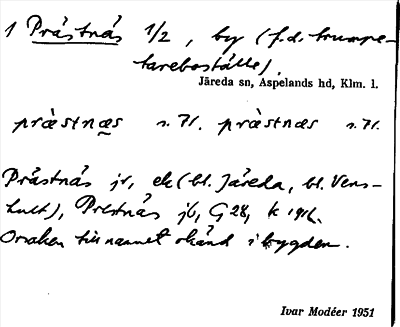 1 Prästnäs 1/2, by (f.d. trumpe-
tareboställe)
Järeda sn, Aspelands hd, Klm. l.
præ̀stnæs s. 71. præ̀stnæs s. 71.
Prästnäs jr, ek (bl. Järeda, bl. Vens-
hult), Prestnäs jb, G 28, k 1916.
Orsaken till namnet okänd i bygden.
Ivar Modéer 1951